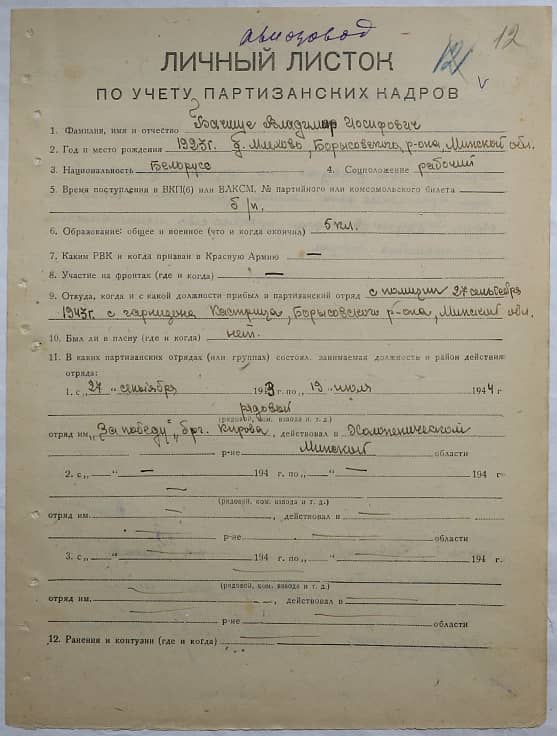 автозавод
12
ЛИЧНЫЙ ЛИСТОК
ПО УЧЕТУ ПАРТИЗАНСКИХ КАДРОВ
1. Фамилия, имя и отчество Владимир Иосифович
2. Год и место рождения 1927г. д. Борисовского, р-она, Минской обл.
3. Национальность Белорусс 4. Соцположение рабочий
5. Время поступления в ВКП(б) или ВЛКСМ, № партийного или комсомольского билета
б/п.
6. Образование: общее и военное (что и когда окончил) 5 кл.
7. Каким РВК и когда призван в Красную Армию —
8. Участие на фронтах (где и когда) —
9. Откуда, когда и с какой должности прибыл в партизанский отряд с полиции 27 сентября
1943г. с гарнизона Кострица, Борысовского р-она, Минской обл.
10. Был ли в плену (где и когда) нет.
11. В каких партизанских отрядах (или группах) состоял, занимаемая должность и район действия
отряда:
1. с „27„ сентября 1943 г. по „ 19 „ июля 1944 г
рядовой
(рядовой, ком. взвода и т. д.)
отряд им. „За победу", бриг. Кирова, действовал в Холопеническом
р-не Минской области
2. с „—" — 194 г. по „—" — 194 г
(рядовой, ком. взвода и т. д.)
отряд им. , действовал в
р-не области
3. с „ " 194 г. по „ " 194 г
(рядовой, ком. взвода и т. д.)
отряд им. , действовал в
р-не области
12. Ранения и контузии (где и когда)